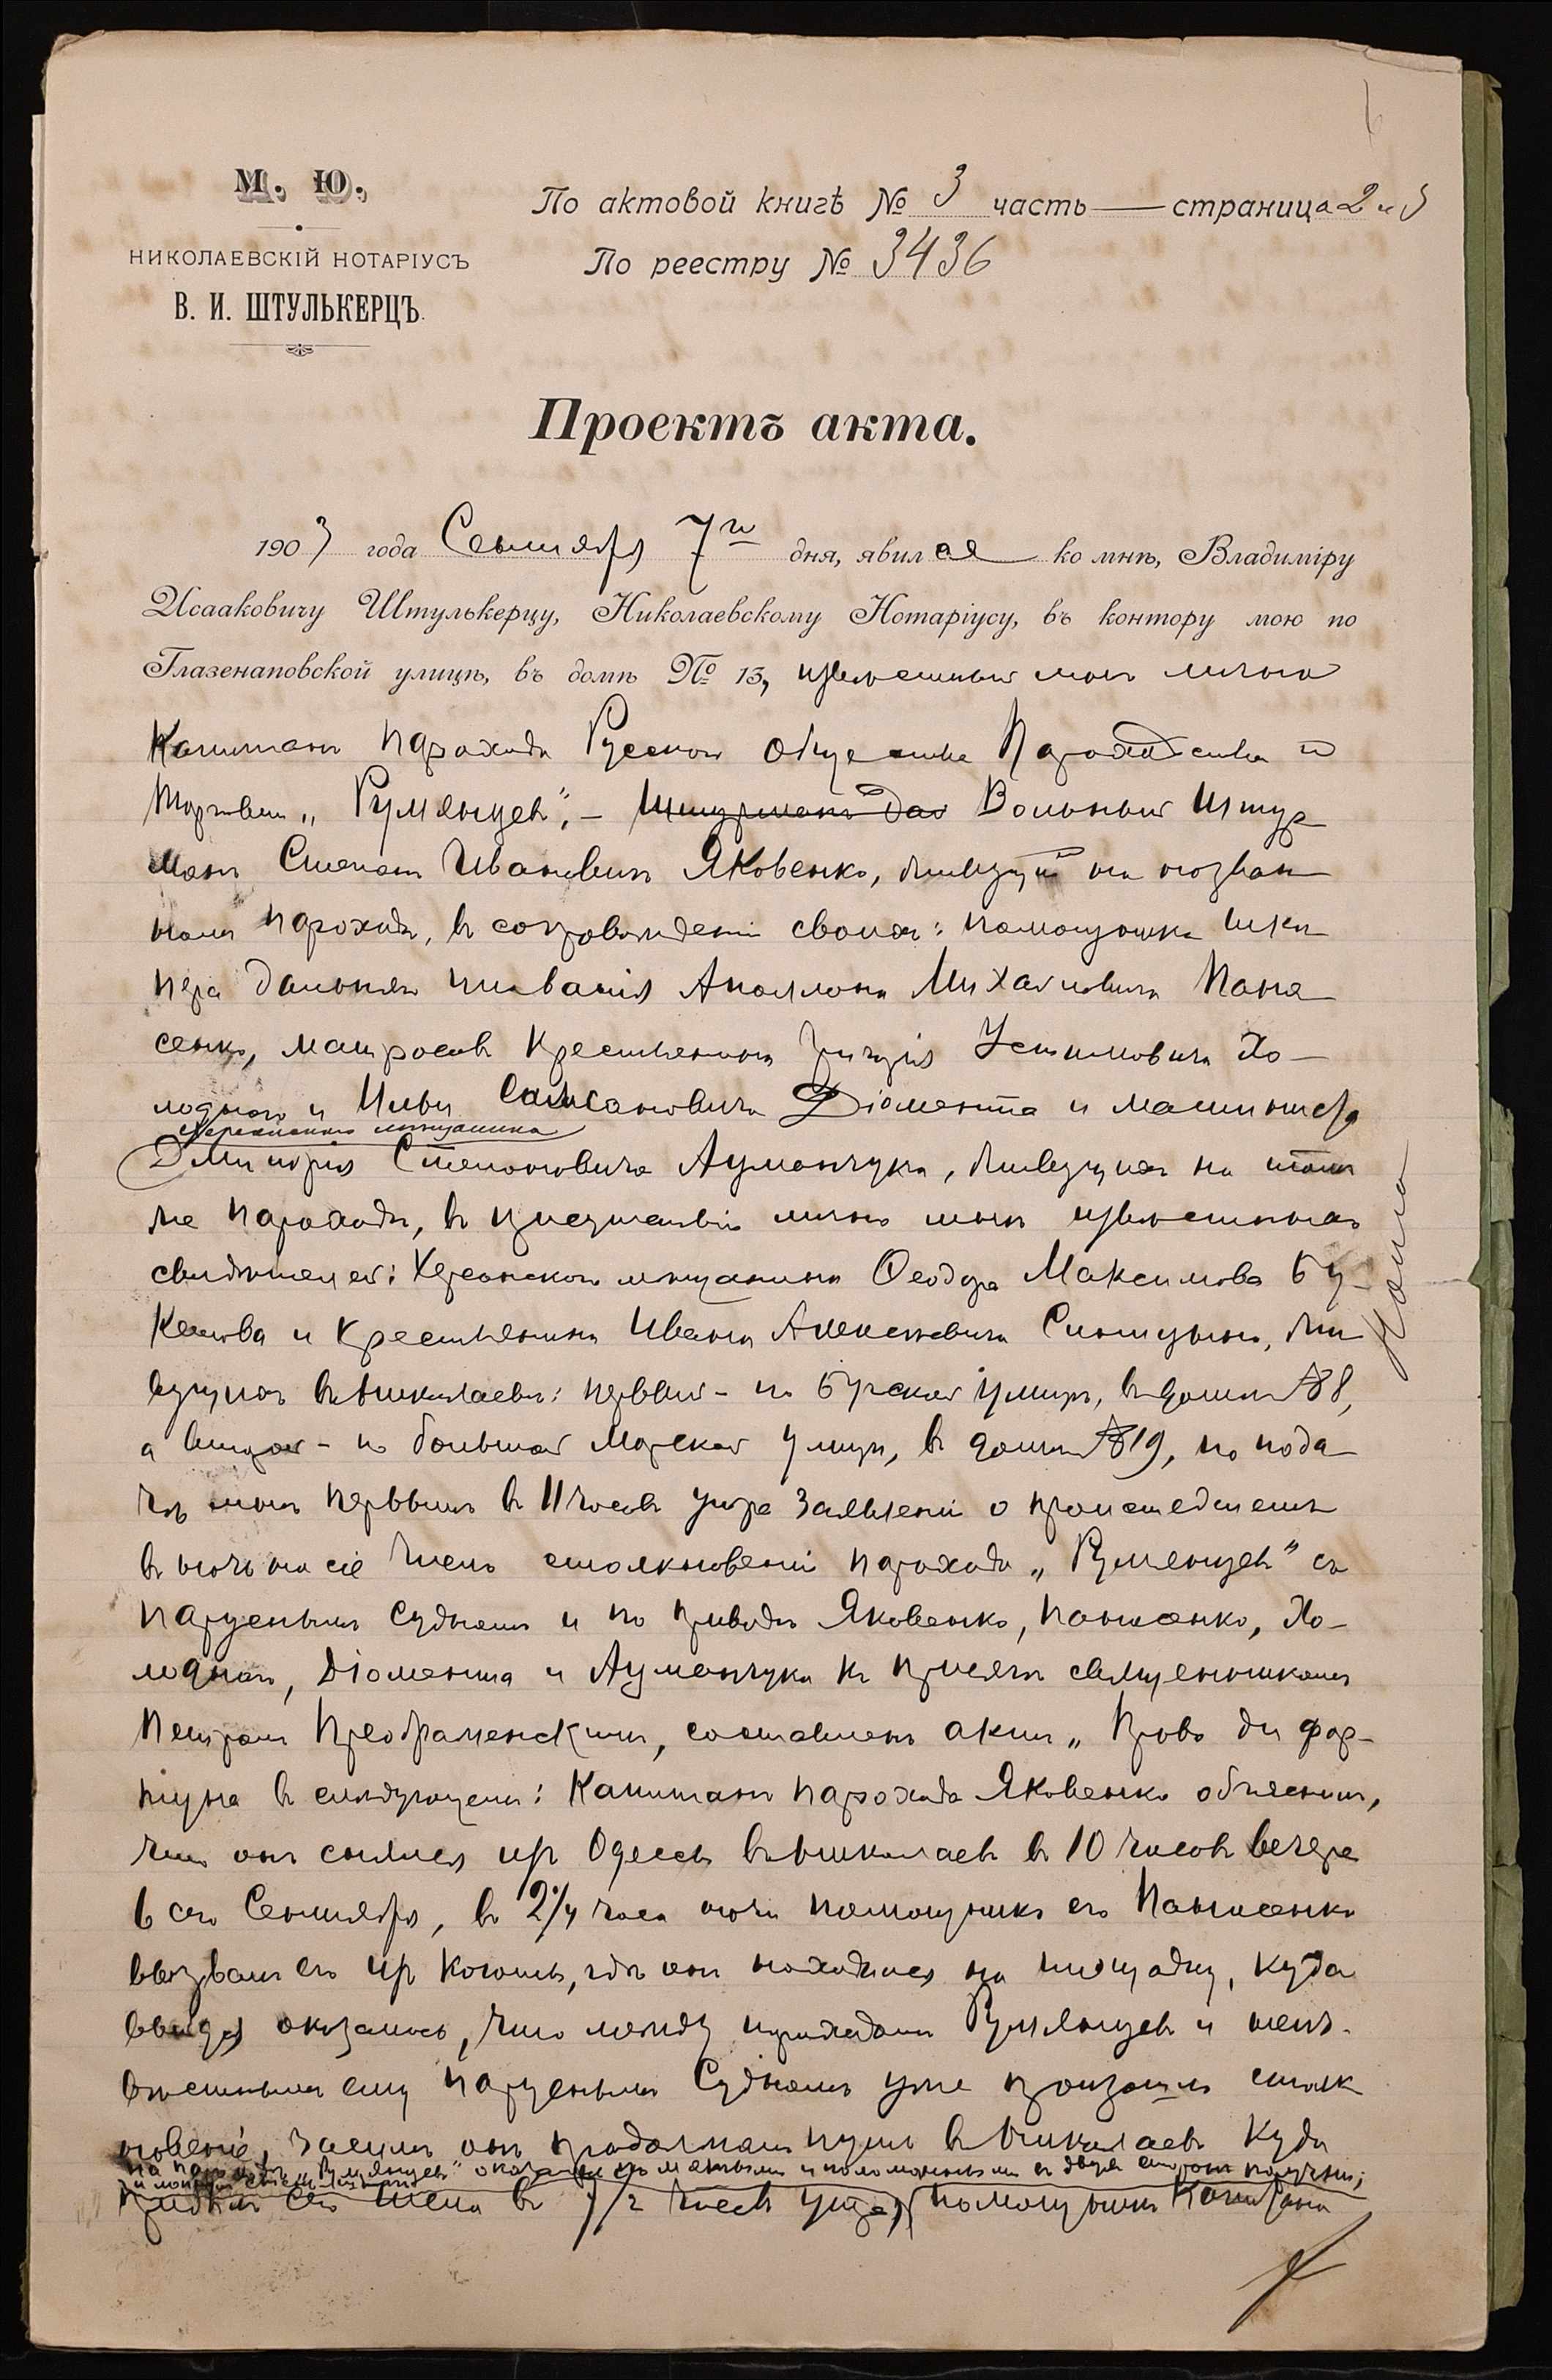 М. Ю.
НИКОЛАЕВСКІЙ НОТАРІУСЪ
В. И. ШТУЛЬКЕРЦЪ.
По актовой книгѣ № 3 часть — страница 2 и 3
По реестру № 3436
Проектъ акта.
1903 года Сентября 7го дня, явился ко мнѣ, Владиміру
Исааковичу Штулькерцу, Николаевскому Нотаріусу, въ контору мою по
Глазенаповской улицѣ, въ домѣ № 13, извѣстный мнѣ лично
Капитанъ парохода Русскаго Общества Пароходства и
Торговли „Румянцевъ", – Штурманъ дал Вольный Штур
манъ Степанъ Ивановичъ Яковенко, живущій на назван
номъ пароходѣ, въ сопровожденіи своихъ: помощника шки
пера дальняго плаванія Аполлона Михайловича Пана
сенко, матросовъ крестьянина Григорія Устимовича Хо–
лоднаго и Ильи Діомента и машиниста
херсонскаго мѣщанина
Дмитрія Степановича Ауманчука, живущихъ на томъ
же пароходѣ, въ присутствіи лично мнѣ извѣстныхъ
свидѣтелей: Херсонскаго мѣщанина Ѳеодора Максимова Бу–
кетова и крестьянина Ивана Алексѣевича Синицына, жи
вущихъ въ Николаевѣ: первый – по Бугской улицѣ, въ домѣ № 8,
а второй – по Большой Морской улицѣ, въ домѣ № 19, по пода
чѣ мнѣ первымъ въ 11 часовъ утра заявленія о происшедшемъ
въ ночь на сіе число столкновеніи парохода „Румянцевъ" съ
паруснымъ судномъ и по приводѣ Яковенко, Панасенко, Хо–
лоднаго, Діомента и Ауманчука къ присягѣ священникомъ
Петромъ Преображенскимъ, составленъ актъ „Прова ди фор–
туна въ слѣдующемъ: Капитанъ парохода Яковенко объяснилъ,
что онъ снялся изъ Одессы въ Николаевъ въ 10 часовъ вечера
6 сего Сентября, въ 2¼ часа ночи помощникъ его Панасенко
вызвалъ его изъ каюты, гдѣ онъ находился на площадку, куда
выйдя оказалось, что между пароходомъ Румянцевъ и неиз–
вѣстнымъ ему паруснымъ судномъ уже произошло столк
новеніе, засимъ онъ продолжалъ путь въ Николаевъ куда
на пароходѣ „Румянцевъ" оказались и поломанными съ двухъ сторонъ поручни;
прибылъ сего числа въ 7½ часовъ утра, помощникъ Капитана